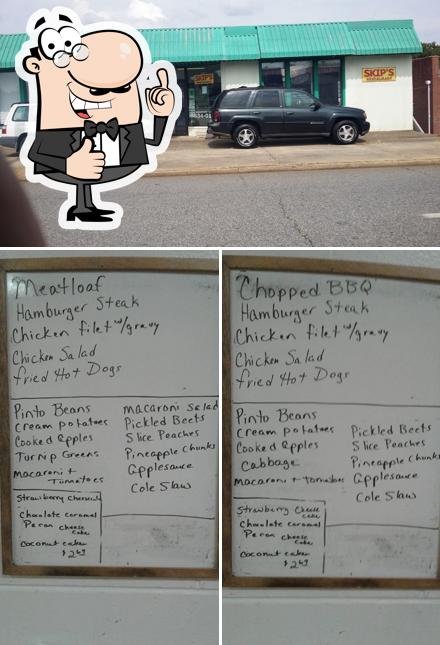 SKIP'S
RESTAURANT
Meatloaf
Hamburger Steak
Chicken filet w/gravy
Chicken Salad
fried Hot Dogs
Pinto Beans
Cream potatoes
Cooked Apples
Turnip Greens
Macaroni +
Tomatoes
macaroni Salad
Pickled Beets
Slice Peaches
Pineapple Chunks
Applesauce
Cole Slaw
Strawberry
Chocolate Caramel
Pecan Cheese
Cake
Coconut cake
$2.49
Chopped BBQ
Hamburger Steak
Chicken filet w/gravy
Chicken Salad
fried Hot Dogs
Pinto Beans
Cream potatoes
Cooked Apples
Cabbage
Macaroni + Tomatoes
Pickled Beets
Slice Peaches
Pineapple Chunks
Applesauce
Cole Slaw
Strawberry Cheese
Cake
Chocolate Caramel
Pecan Cheese
Cake
Coconut cake
$2.49